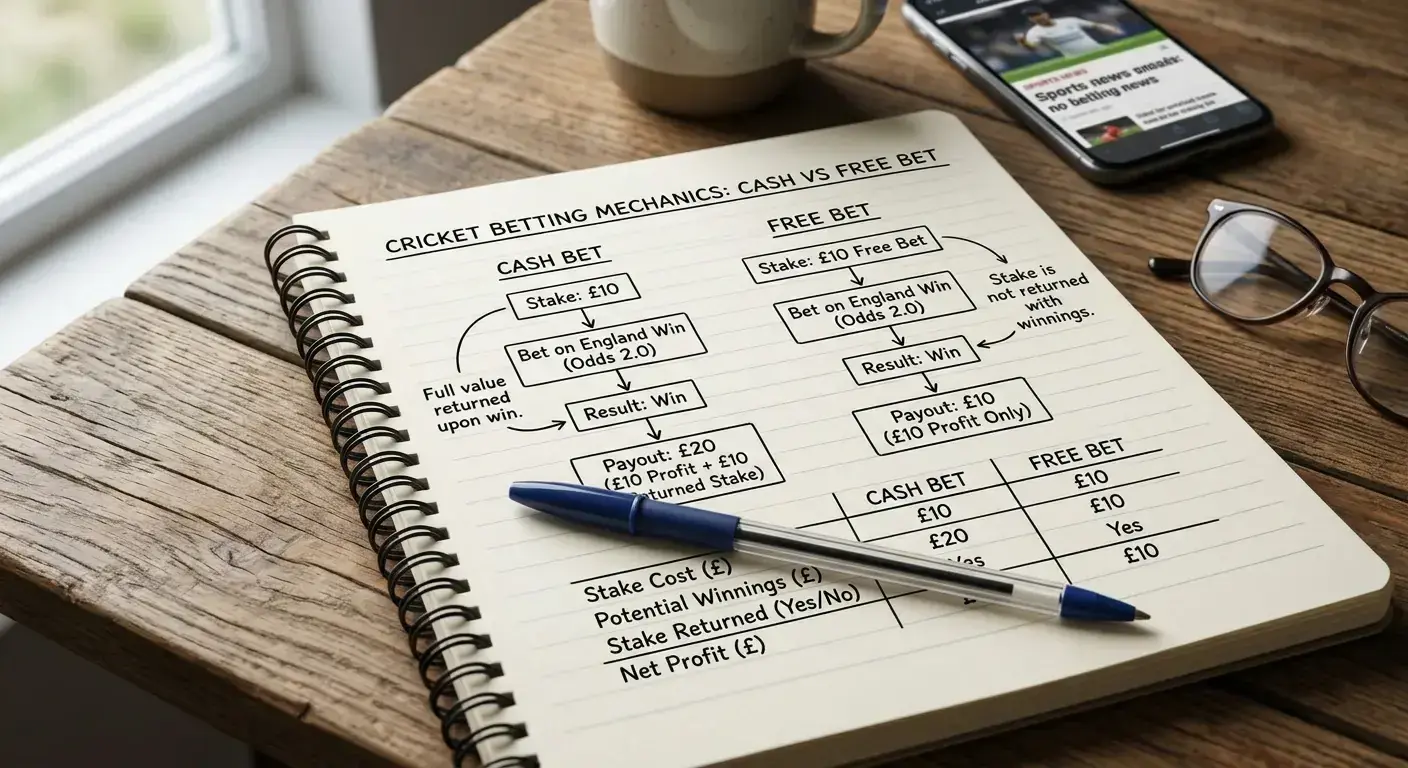 CRICKET BETTING MECHANICS: CASH VS FREE BET
CASH BET
Stake: £10
Bet on England Win
(Odds 2.0)
Full value
returned
upon win.
Result: Win
Payout: £20
(£10 Profit + £10
Stake)
FREE BET
Stake: £10 Free Bet
Bet on England Win
(Odds 2.0)
Stake is
not returned
with
winnings.
Result: Win
Payout: £10
(£10 Profit Only)
CASH BET FREE BET
Stake Cost (£) £10 £10
Potential Winnings (£) £20 £10
Stake Returned (Yes/No) Yes
Net Profit (£) £10
SPORTS NEWS
Sports news
no betting news